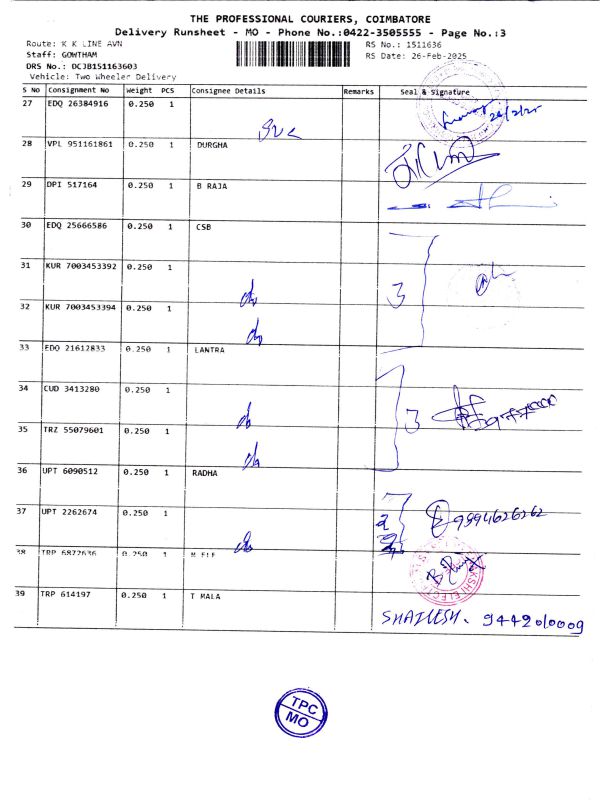 THE PROFESSIONAL COURIERS, COIMBATORE
Delivery Runsheet - MO - Phone No.:0422-3505555 - Page No.:3
Route: K K LINE AVN
RS No.: 1511636
Staff: GOWTHAM
RS Date: 26-Feb-2025
DRS No.: DCJB151163603
Vehicle: Two Wheeler Delivery
S No Consignment No Weight PCS Consignee Details Remarks Seal & Signature
27 EDQ 26384916 0.250 1
26/2/25
28 VPL 951161861 0.250 1 DURGHA
29 DPI 517164 0.250 1 B RAJA
30 EDQ 25666586 0.250 1 CSB
31 KUR 7003453392 0.250 1
3
32 KUR 7003453394 0.250 1
33 EDQ 21612833 0.250 1 LANTRA
34 CUD 3413280 0.250 1
3
35 TRZ 55079601 0.250 1
36 UPT 6090512 0.250 1 RADHA
37 UPT 2262674 0.250 1
2 9994626262
38 TRP 6872636 0.250 1 M ELE
39 TRP 614197 0.250 1 T MALA
SHAILESH. 9442010009
TPC
MO